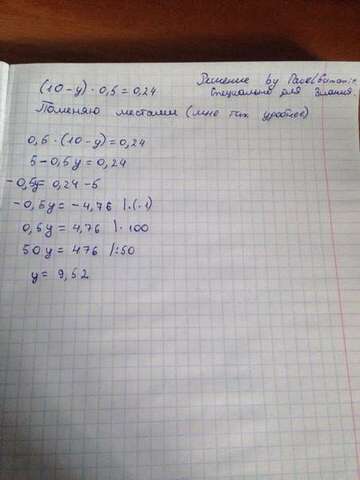 (10-y)·0,5=0,24
Решение by Pavel
Специально для Знания.
Поменяю местами (мне так удобнее)
0,5·(10-y)=0,24
5-0,5y=0,24
-0,5y=0,24-5
-0,5y=-4,76 |·(-1)
0,5y=4,76 |·100
50y=476 |:50
y=9,52